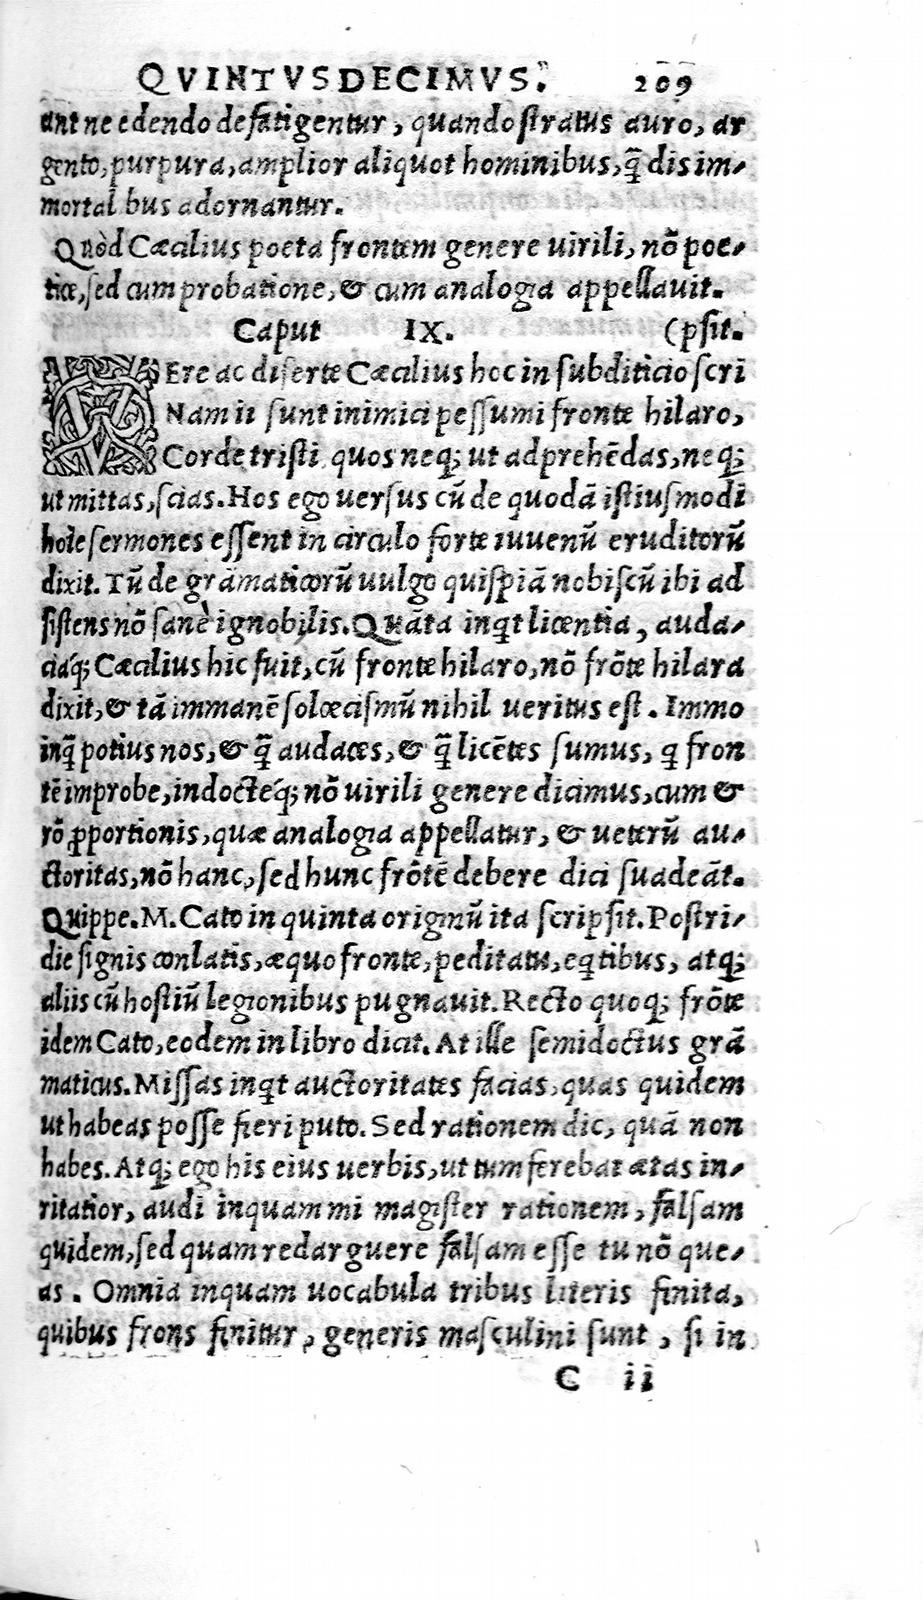 QVINTVSDECIMVS. 209
ant ne edendo defatigentur, quando stratus auro, ar
gento, purpura, amplior aliquot hominibus, q̃ dis im-
mortal bus adornantur.
Quòd Cæcilius poeta frontem genere uirili, nõ poe-
tice, sed cum probatione, & cum analogia appellauit.
Caput IX. (psit.
VEre ac diserte Cæcilius hoc in subditicio scri
Nam ii sunt inimici pessumi fronte hilaro,
Corde tristi quos neq; ut adprehẽdas, neq;
ut mittas, scias. Hos ego uersus cũ de quodã istiusmodi
hoĩe sermones essent in circulo forte iuuenũ eruditorũ
dixit. Tũ de grãmaticorũ uulgo quispiã nobiscũ ibi ad
sistens nõ sanè ignobilis. Quãta inqt licentia, auda-
ciáq; Cæcilius hic fuit, cũ fronte hilaro, nõ frõte hilara
dixit, & tã immanẽ solœcismũ nihil ueritus est. Immo
inq̃ potius nos, & q̃ audaces, & q̃ licẽtes sumus, q fron
tẽ improbe, indocteq́; nõ uirili genere dicimus, cum &
rõ ꝓportionis, quæ analogia appellatur, & ueterũ au-
ctoritas, nõ hanc, sed hunc frõtẽ debere dici suadeãt.
Quippe. M. Cato in quinta originũ ita scripsit. Postri-
die signis conlatis, æquo fronte, peditatu, eqtibus, atq;
aliis cũ hostiũ legionibus pugnauit. Recto quoq; frõte
idem Cato, eodem in libro dicit. At ille semidoctus grã
maticus. Missas inqt auctoritates facias, quas quidem
ut habeas posse fieri puto. Sed rationem dic, quã non
habes. Atq; ego his eius uerbis, ut tum ferebat ætas in-
ritatior, audi inquam mi magister rationem, falsam
quidem, sed quam redarguere falsam esse tu nõ que-
as. Omnia inquam uocabula tribus literis finita,
quibus frons finitur, generis masculini sunt, si in
C ii